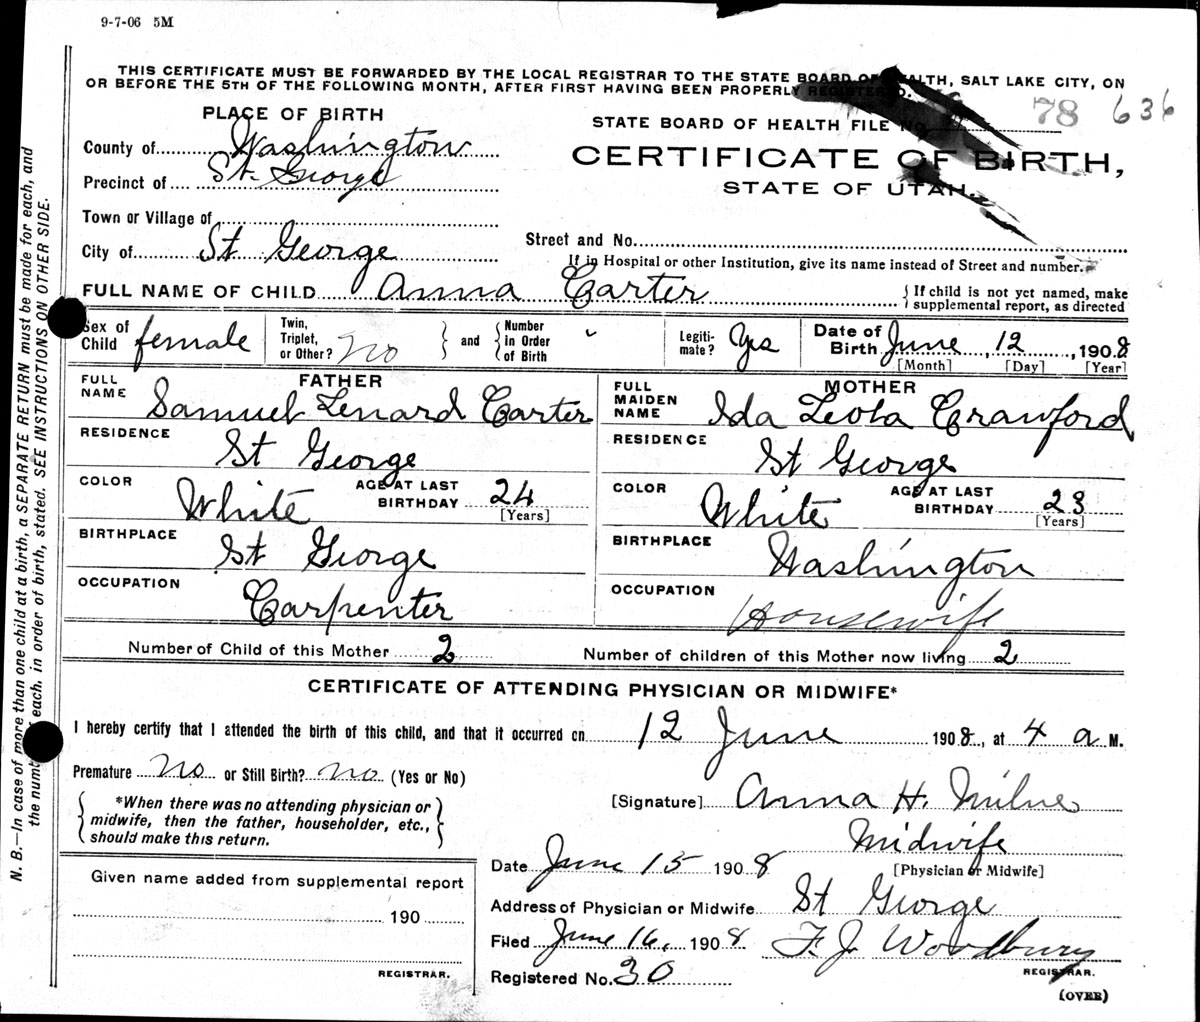 9-7-06 5M
THIS CERTIFICATE MUST BE FORWARDED BY THE LOCAL REGISTRAR TO THE STATE BOARD OF HEALTH, SALT LAKE CITY, ON
OR BEFORE THE 5TH OF THE FOLLOWING MONTH, AFTER FIRST HAVING BEEN PROPERLY REGISTERED.
PLACE OF BIRTH
STATE BOARD OF HEALTH FILE NO. 78 636
County of Washington
CERTIFICATE OF BIRTH,
Precinct of St. George
STATE OF UTAH.
Town or Village of
City of St George
Street and No.
If in Hospital or other Institution, give its name instead of Street and number.
FULL NAME OF CHILD Anna Carter
{If child is not yet named, make
supplemental report, as directed
Sex of Child female
Twin, Triplet, or Other? No
and
Number in Order of Birth
Legiti-mate? Yes
Date of Birth June, 12, 1908
[Month] [Day] [Year]
FATHER
FULL NAME Samuel Lenard Carter
RESIDENCE St George
COLOR White AGE AT LAST BIRTHDAY 24
[Years]
BIRTHPLACE St George
OCCUPATION Carpenter
MOTHER
FULL MAIDEN NAME Ida Leola Crawford
RESIDENCE St George
COLOR White AGE AT LAST BIRTHDAY 23
[Years]
BIRTHPLACE Washington
OCCUPATION Housewife
Number of Child of this Mother 2 Number of children of this Mother now living 2
CERTIFICATE OF ATTENDING PHYSICIAN OR MIDWIFE*
I hereby certify that I attended the birth of this child, and that it occurred on 12 June 1908, at 4 a M.
Premature No or Still Birth? No (Yes or No)
*When there was no attending physician or
midwife, then the father, householder, etc.,
should make this return.
[Signature] Anna H. Milne
Midwife
[Physician or Midwife]
Date June 15 1908
Address of Physician or Midwife St George
Filed June 16, 1908 F. J. Woodbury
REGISTRAR.
Registered No. 30
(OVER)
Given name added from supplemental report
190
REGISTRAR.
N. B.—In case of more than one child at a birth, a SEPARATE RETURN must be made for each, and
the number each, in order of birth, stated. SEE INSTRUCTIONS ON OTHER SIDE.